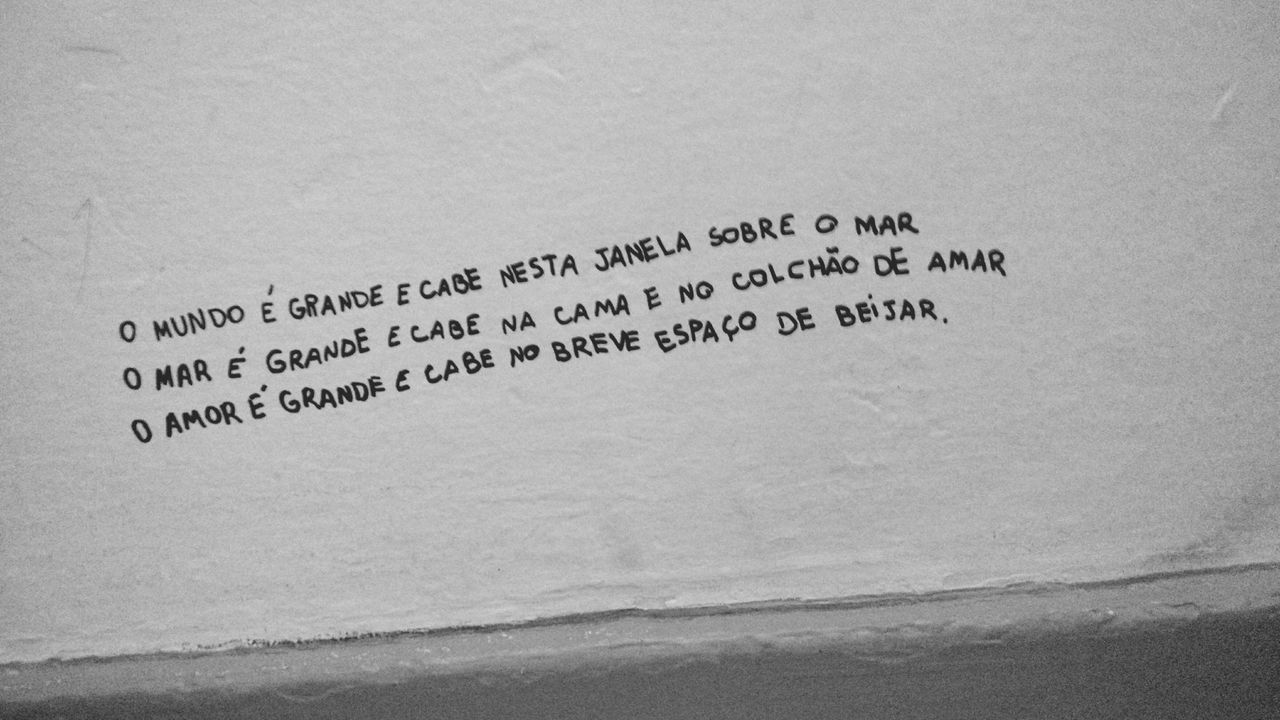 O MUNDO É GRANDE E CABE NESTA JANELA SOBRE O MAR
O MAR É GRANDE E CABE NA CAMA E NO COLCHÃO DE AMAR
O AMOR É GRANDE E CABE NO BREVE ESPAÇO DE BEIJAR.